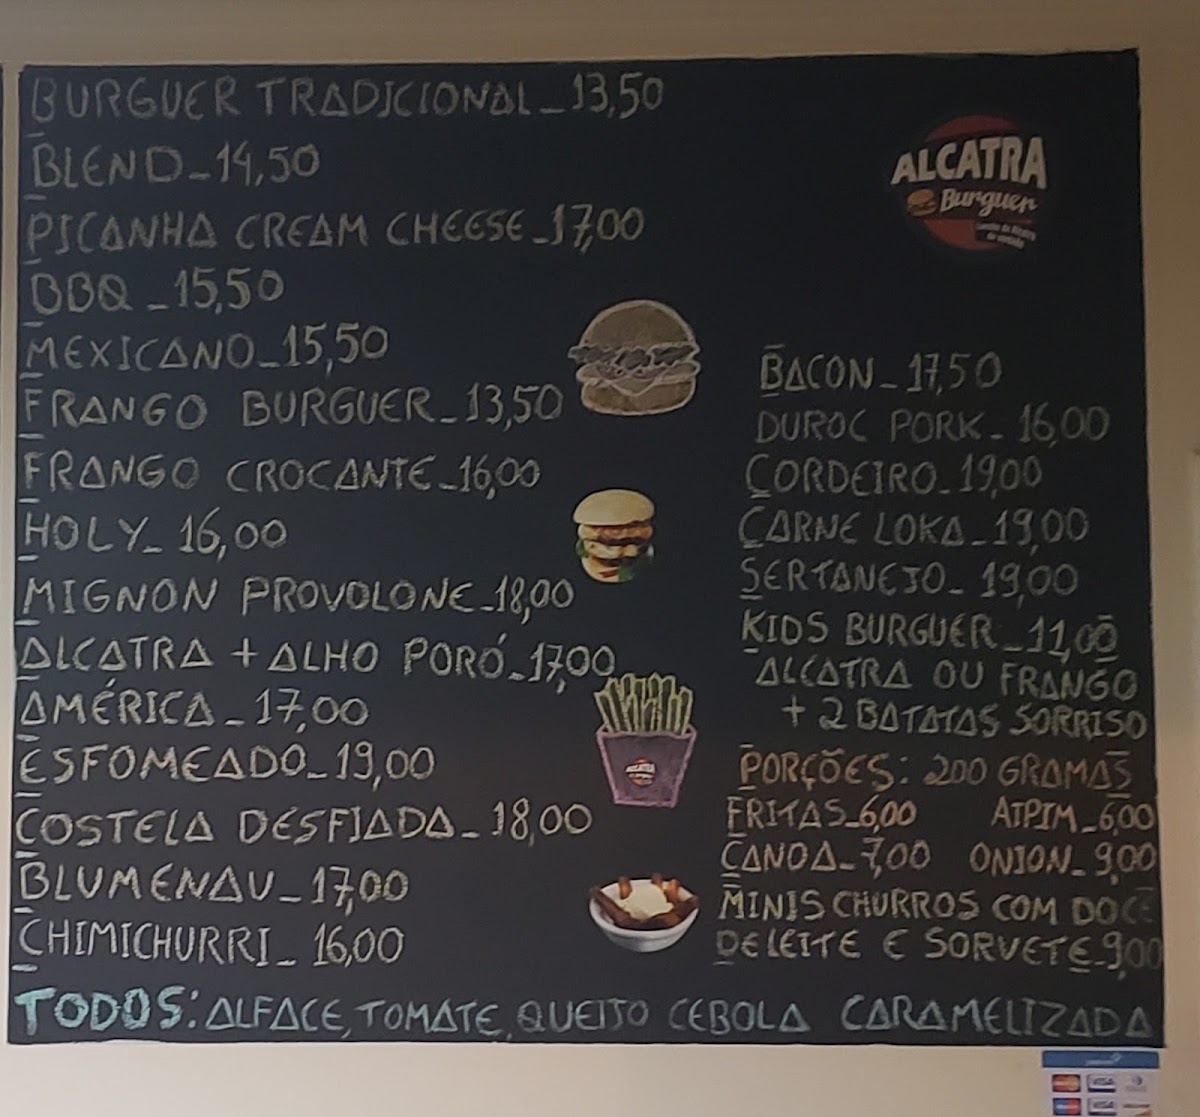 BURGUER TRADICIONAL_13,50
BLEND_14,50
PICANHA CREAM CHEESE_17,00
BBQ_15,50
MEXICANO_15,50
FRANGO BURGUER_13,50
FRANGO CROCANTE_16,00
HOLY_16,00
MIGNON PROVOLONE_18,00
ALCATRA + ALHO PORÓ_17,00
AMÉRICA_17,00
ESFOMEADO_19,00
COSTELA DESFIADA_18,00
BLUMENAU_17,00
CHIMICHURRI_16,00
ALCATRA
Burguer
BACON_17,50
DUROC PORK_16,00
CORDEIRO_19,00
CARNE LOKA_19,00
SERTANEJO_19,00
KIDS BURGUER_11,00
ALCATRA OU FRANGO
+ 2 BATATAS SORRISO
PORÇÕES: 200 GRAMAS
FRITAS_6,00 AIPIM_6,00
CANOA_7,00 ONION_9,00
MINIS CHURROS COM DOCE
DE LEITE E SORVETE_9,00
ALCATRA
TODOS: ALFACE, TOMATE, QUEIJO CEBOLA CARAMELIZADA
VISA
VISA